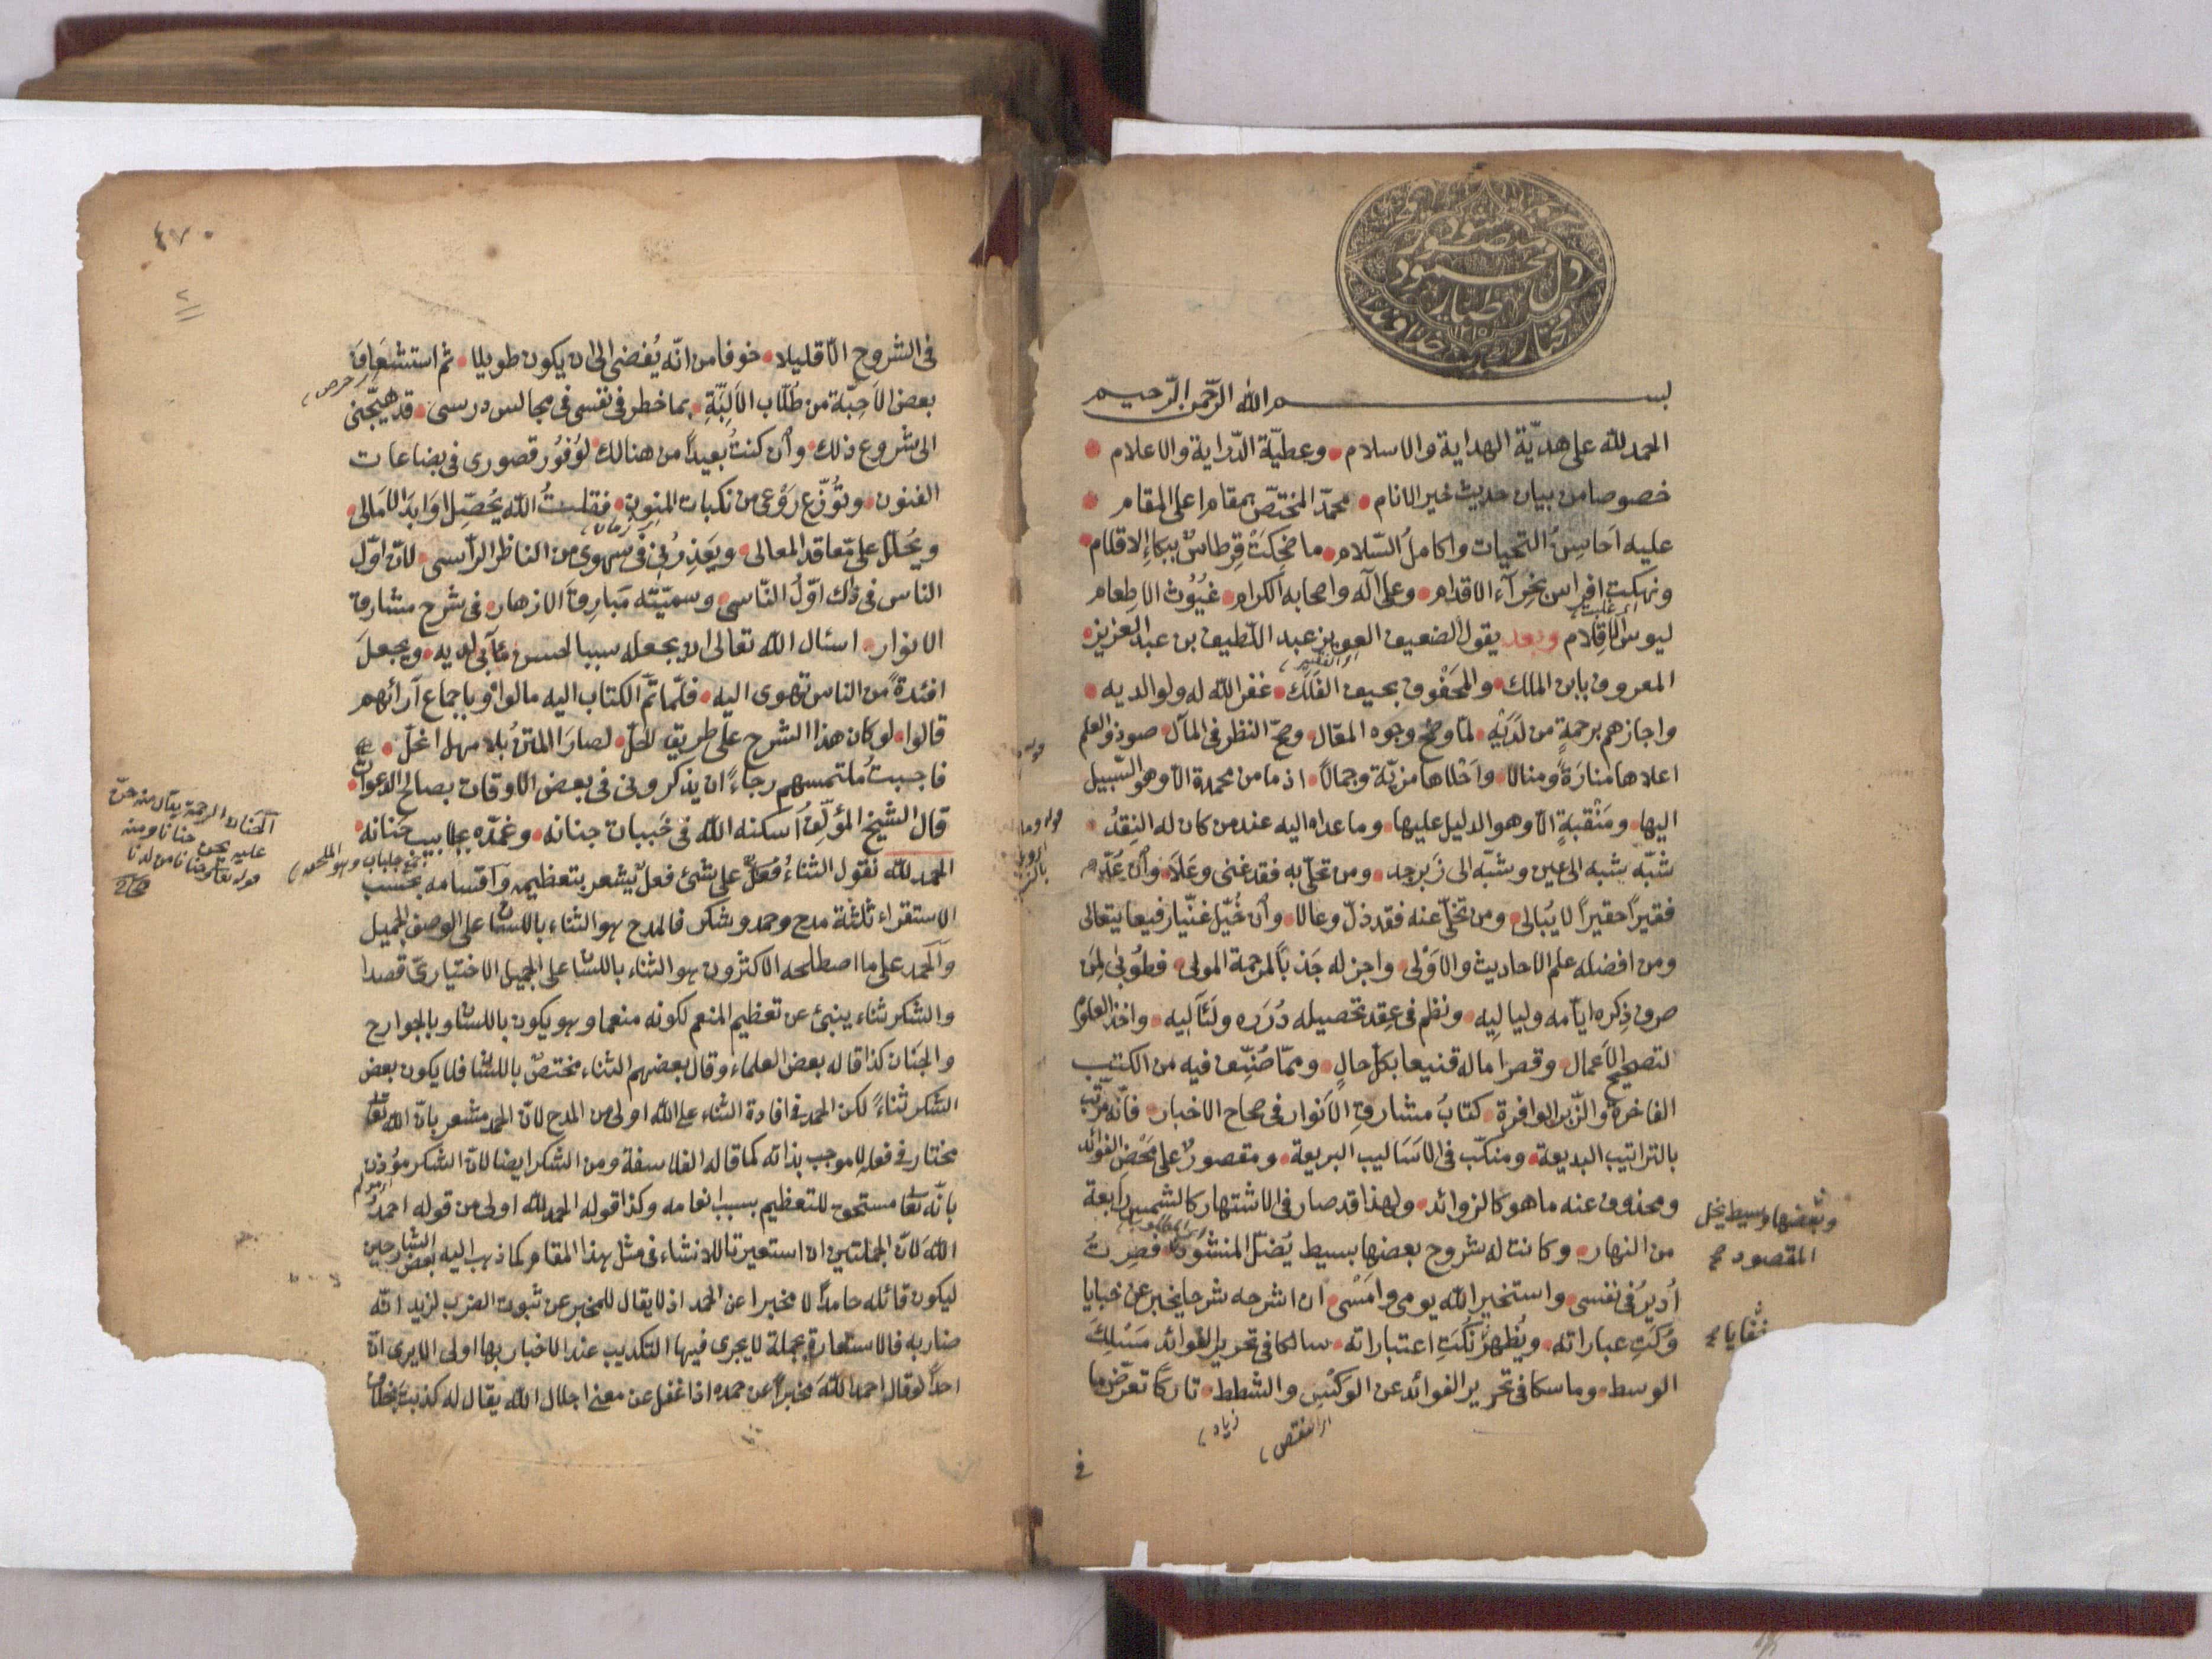 بسم الله الرحمن الرحيم
الحمد لله على هديّة الهداية والاسلام وعطيّة الدّراية والاعلام
خصوصا من بيان حديث خير الانام محمّد المختصّ بمقام اعلى المقام
عليه اَحَاسِنُ التحيات واكاملُ السّلام ما ضحِكَتْ قِرطاسٌ ببكاءِ الاقلام
ونهكت افراس بخِرَآء الاقدام وعلى آله واصحابه الكرام غيُوُث الاطعام
ليوس الاقلام وبعد يقول الضعيف العويز عبد اللّطيف بن عبد العزيز
المعروف بابن الملك والمَحَفْوف بحيف الفَلَك غفر الله له ولوالديه
واجازهم برحمةٍ من لَدَيْهِ لمّا وضح وجوه المقال وصحّ النظر فى المآل صوذو العلم
اعلاها منارَةً ومنالا واَحْلاها مزيّة وجمالا اذ ما من محمدة الّا وهو السّبيل
اليها ومَنْقبةٍ الّا وهو الدليل عليها وما عداه اليه عند من كان له النِقدُ
شبّه بشبه الى عين وشبّه الى زَبرجد ومن تحلّى به فقد غنى وعَلَا وأن عُدّ
فقيراً حقيراً لا يُبالى ومن تخلّى عنه فقد ذلّ وعالا وأن خُيّل غنّيا رفيعا يتعالى
ومن افضله علم الاحاديث والاَوْلى واجزله جَذباً لمرحمة المولى فطوُبى لمِنَ
صرف ذِكره ايّامه ولياليِه ونظم فى عِقد تحصيله دُرَره ولَئَآليه واخذ العلوم
لتصحيح الاَعمال وقصر اماله قنيعا بكلّ حالٍ وممّا صُنِّف فيه من الكتب
الفاخرة والزّبر الوافرة كتابُ مشارق الاَنوار فى صحاح الاخبار فانّه مرتّب
بالتراتيب البديعة ومنكّب فى الاَسَاليب البريعة ومقصورٌ على مَحْض الفوائد
ومحذوف عنه ما هو كالزوائد ولهذا قد صار فى الاشتهار كالشمس رابعة
من النهار وكانت له شروح بعضها بسيط يُضلّ المنشود فصرتُ
أُديرُ فى نفسى واستخير الله يومى وامَسْى ان اشرحه شرحا يخبر عن خبايا
وُكَتِ عباراته ويُظهرُ نُكَتِ اعتباراته سالكا فى تحرير الفوائد مَسْلكَ
الوسط وماسكا فى تحرير الفوائد عن الوَكْسِ والشطط تاركًا تعرّض ما
وبعضها وسيط يخل
المقصود صح
خفايا صح
اى النقص
زياد
فى
٤٧٠
٢
فى الشروح الّا قليلا خوفا من انّه يُفضى الى ان يكون طويلا ثم استشعَافَ
بعض الاَحِبّة من طُلّاب الاَلِبَّةِ بما خطر فى نفسى فى مجالس درسى قد هيّجنى
حرص
الى شروع ذلك وأن كنتُ بعيداً من هنالك لوُفوُر قصورى فى بضاعات
الفنون وتوُزّع رَوْعى من نكبات المنونِ فقلتُ الله يُحَصّلِ اوَابدَ الاَمالى
ويحَُلّل على مّعاقد المعالى ويَعَذِرُنى فى سهوى من الناظر الرآسى لانّ اوّل
الناس فى ذاك اوّلُ النّاسى وسميّته مَبَارِقَ الازهار فى شرح مشارق
الانوار اسئال الله تعالى ان يجعله سببا لحسن مَآبى لديه ويجعلَ
افئدةً من الناس تهوى اليه فلمّا تمّ الكتاب اليه مالوا وباجماع آرائهم
قالوا لو كان هذا الشرح على طريق الحَلّ لصارَ المتنُ بلا مهل اخلّ
فاجبتُ مُلتمسهم رجاءً ان يذكرونى فى بعض الاوقات بصالح الدعوات
قال الشيخ المؤلِّفُ اسكنه الله فى خَبيبات جنانه وغمّده بجلابيب حَنانه
الحمد لله نقول الثناءُ فُعَلٌ على شئ فعل يُشعر بتعظيمه وآقسامه بحَسَب
الاستقراء ثلثة مدح وحمد وشكر فالمدح هو الثناء باللسان على الوصف الجميل
وَالَحَمد على ما اصطلحه الاكثرون هو الثناء باللسان على الجميل الاختيارىّ قصدا
والشكر ثناء ينبئ عن تعظيم المنعم لكونه منعما وهو يكون باللسان وبالجوارح
والجَنان كذا قاله بعض العلماء وقال بعضهم الثناء مختصّ باللسان فلا يكون بعض
الشكر ثناءً لكن الحمد فى افادة الثناء على الله اولى من المدح لانّ الحمد مشعر بانّ الله تعا
مختار فى فعله لا موجب بذاته كما قاله الفلاسفة ومن الشكر ايضا لانّ الشكر مؤذن
بانّه تعا مستحق للتعظيم بسبب انعامه وكذا قوله الحمد لله اولى من قوله احمدُ
اللهَ لانّ الجملتين ان استعيرتا للانشاء فى مثل هذا المقام كما ذهب اليه بعض الشارحين
ليكون قائله حامداً لا مخبرا عن الحمد اذ لا يقال للمخبر عن ثبوت الضرب لزيد انّه
ضاربه فالاستعارة بجملة لا يجرى فيها التكذيب عند الاخبار بها اولى الا يرى انّ
احداً لو قال احمد اللهَ مخبراً عن حمده اذا غفل عن معنى اجلال الله يقال له كذبتَ
الحَنان الرحمة يقال منه حنّ
عليه يحنّ حنانا ومنه
قوله تعا وحنانا من لدنا
جمع جلباب وهو الملحفة